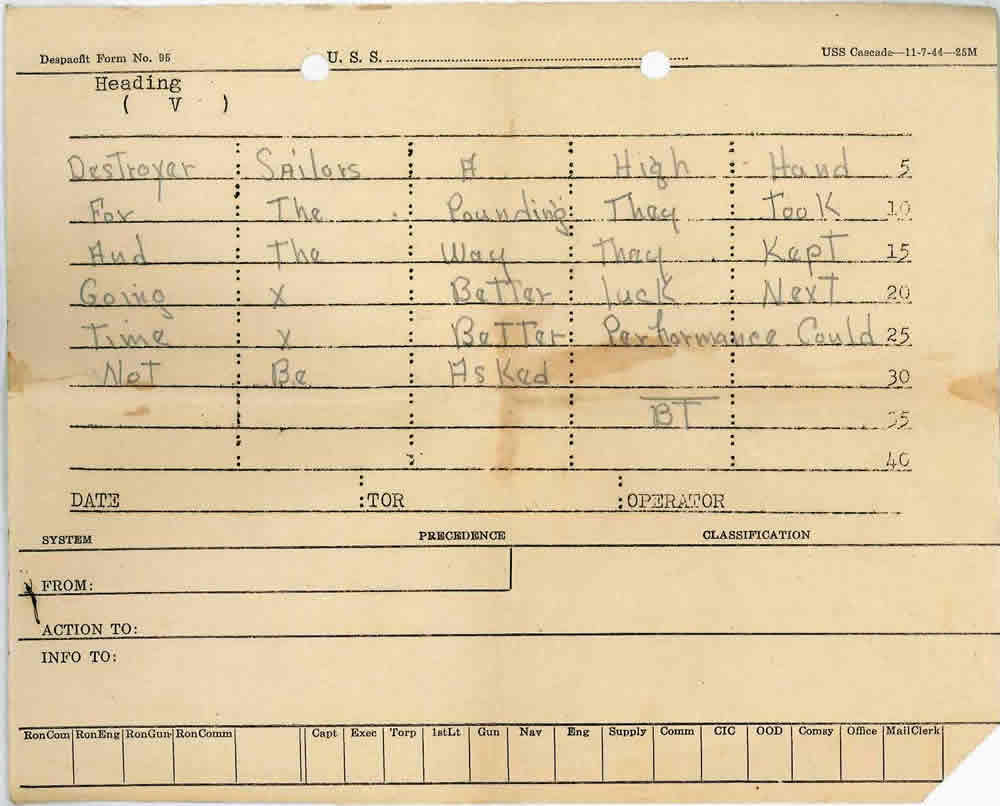 Despacfit Form No. 95 U. S. S. USS Cascade—11-7-44—25M
Heading
( V )
Destroyer Sailors A High Hand 5
For The Pounding They Took 10
And The Way They Kept 15
Going X Better luck Next 20
Time x Better Performance Could 25
Not Be Asked 30
BT 35
40
DATE :TOR :OPERATOR
SYSTEM PRECEDENCE CLASSIFICATION
FROM:
ACTION TO:
INFO TO:
RonCom RonEng RonGun RonComm Capt Exec Torp 1stLt Gun Nav Eng Supply Comm CIC OOD Comsy Office MailClerk